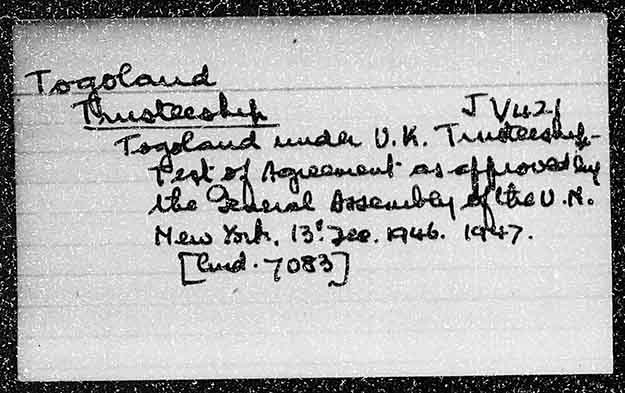 Togoland
Trusteeship JV421
Togoland under U.K. Trusteeship-
Text of Agreement as approved by
the General Assembly of the U.N.
New York, 13th Dec. 1946. 1947.
[Cmd. 7083]